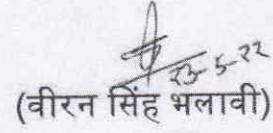 23-5-22
(वीरन सिंह भलावी)